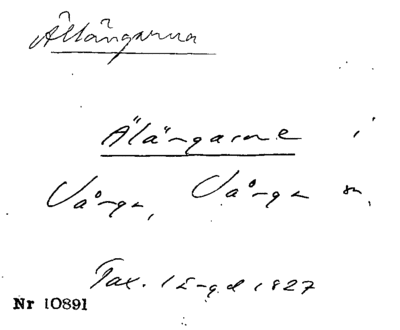 Ällängarna
Älängarne i
Vånga, Vånga sn,
Tax. längd 1827
Nr 10891